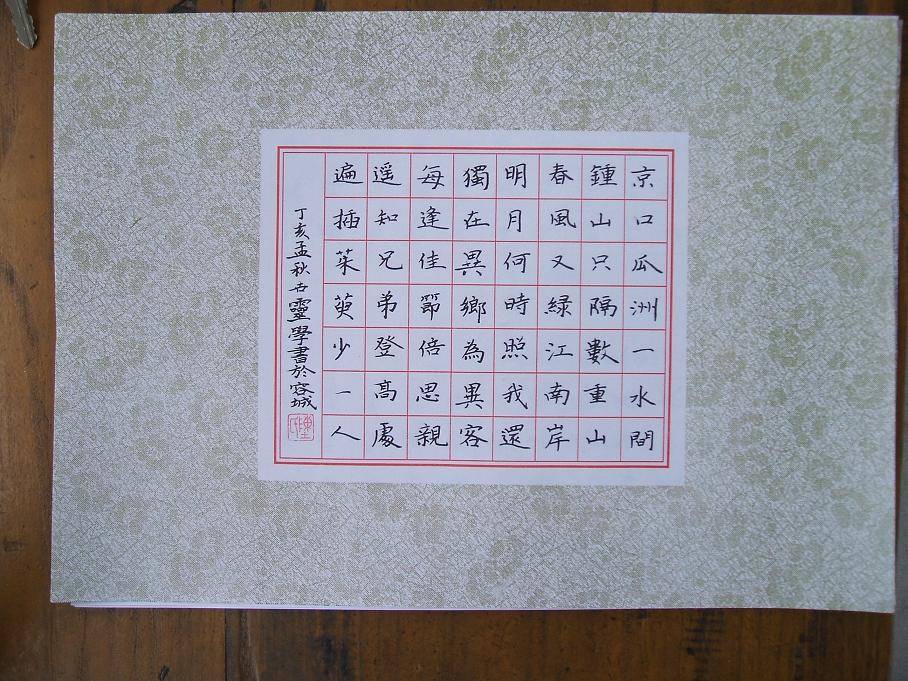 京口瓜洲一水間
鍾山只隔數重山
春風又緑江南岸
明月何時照我還
獨在異鄉為異客
每逢佳節倍思親
遥知兄弟登高處
遍插茱萸少一人
丁亥孟秋靈學書於容城